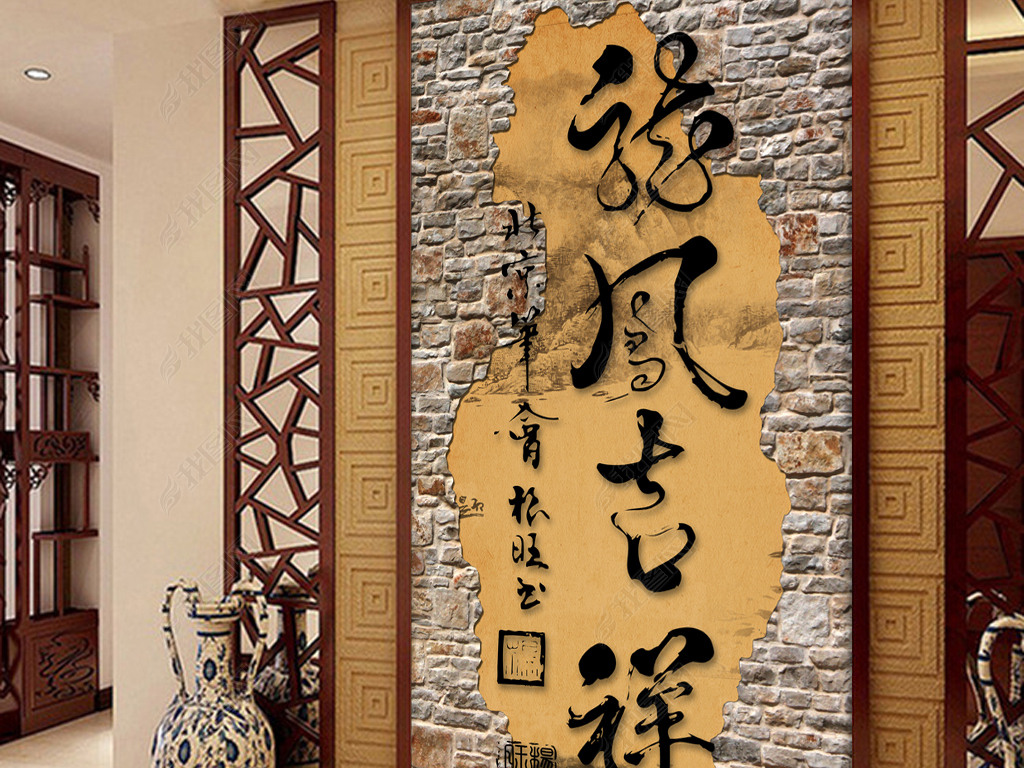 龍鳳吉祥
北京筆會
根旺書